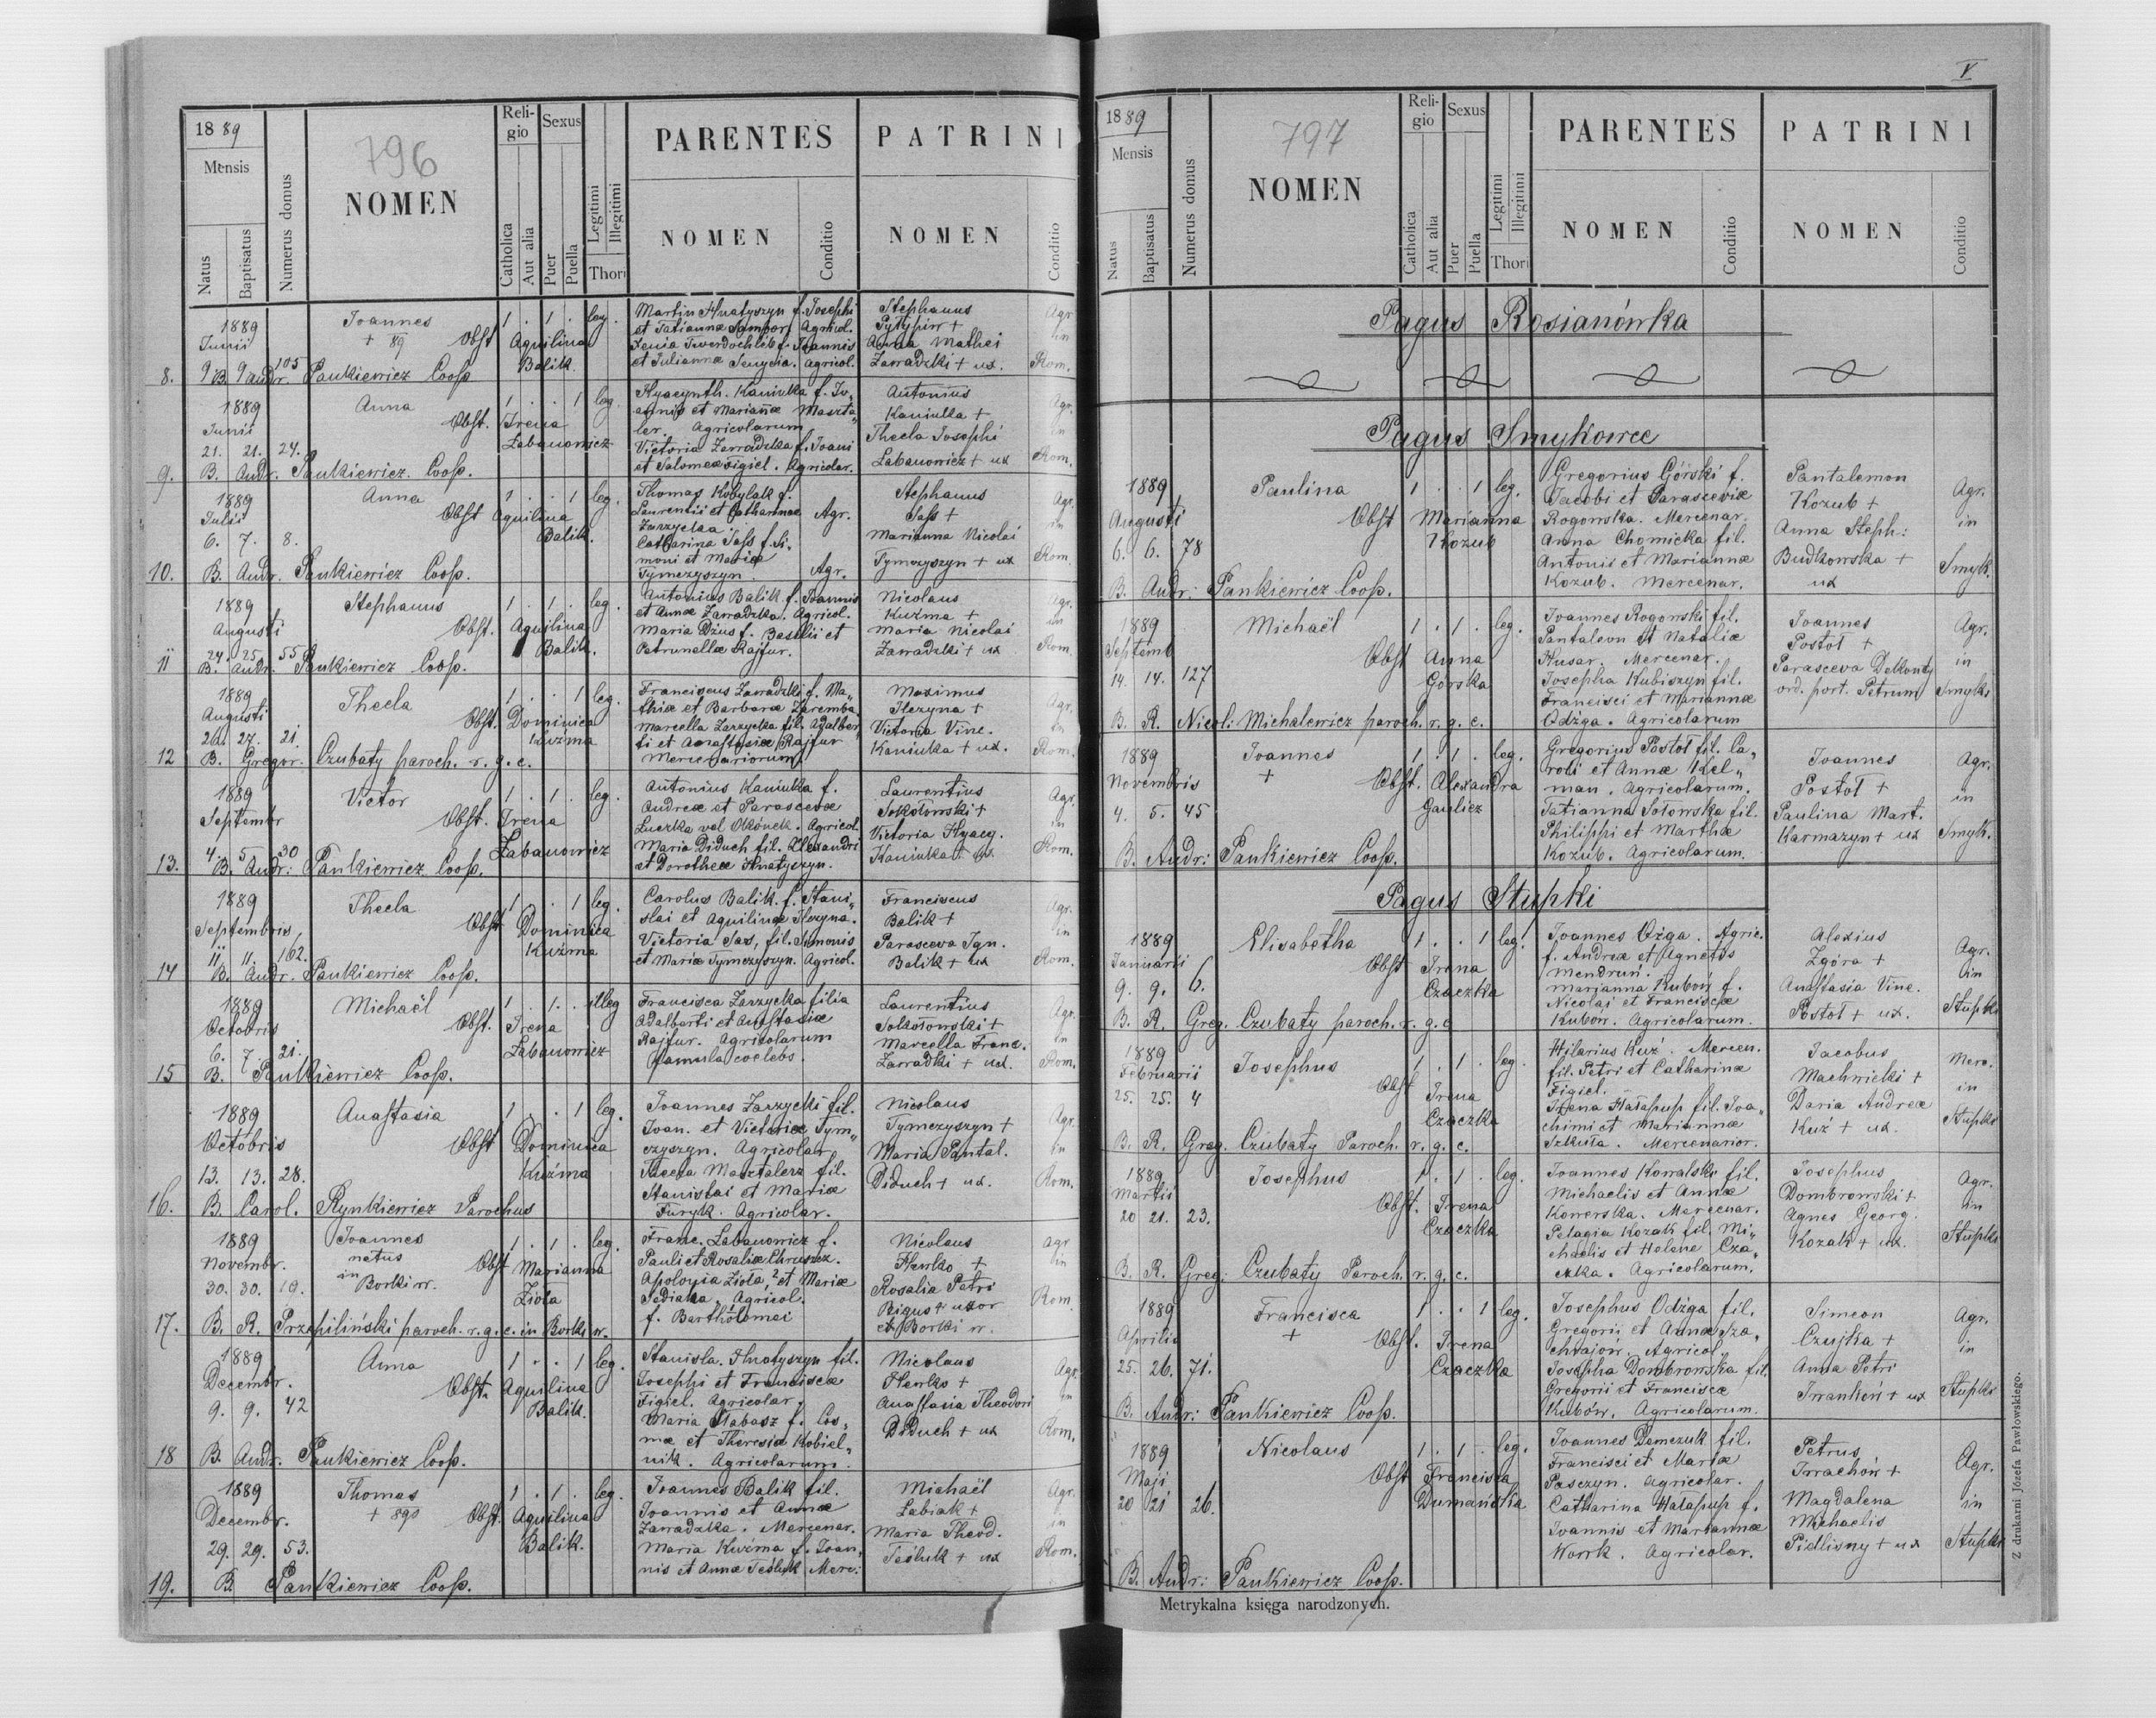 1889
Mensis
Natus
Baptisatus
Numerus domus
796
NOMEN
Religio
Catholica
Aut alia
Sexus
Puer
Puella
Legitimi
Illegitimi
Thori
PARENTES
NOMEN
Conditio
PATRINI
NOMEN
Conditio
8.
1889
Junii
9 9 105
Joannes
+ 89
Obst Aquilina
Balik.
1 . 1 . leg.
Martin Hnatyszyn f. Josephi
et Tatiannæ Sampor, Agricol.
Xenia Twerdochlib f. Joannis
et Juliannæ Senycia. Agricol.
Stephanus
Anna Mathei
Zawadzki + ux.
Agr.
in
Rom.
B. Andr. Pankiewicz Coop
9.
1889
Junii
21. 21. 24.
Anna
Obst. Irena
Labanowicz
1 . . 1 leg.
Hyacynth. Kaniuka f. Jo„
annis et Mariannæ Maszta„
ler. Agricolarum
Victoria Zawadzka f. Joani
et Salomeæ Figiel. Agricolar.
Antonius
Kaniuka +
Thecla Josephi
Labanowicz + ux
Agr.
in
Rom.
B. Andr. Pankiewicz Coop.
10.
1889
Julii
6. 7. 8.
Anna
Obst Aquilina
Balik.
1 . . 1 leg.
Thomas Kobylak f.
Laurentii et Catharinæ Agr.
Zarzycka.
Catharina Sass f. Si„
moni et Mariæ
Tymczyszyn. Agr.
Stephanus
Sass +
Marianna Nicolai
Tymczyszyn + ux
Agr.
in
Rom
B. Andr. Pankiewicz Coop.
11
1889
Augusti
24. 25. 55
Stephanus
Obst. Aquilina
Balik.
1 . 1 . leg.
Antonius Balik f. Joannis
et Annæ Zawadzka. Agricol.
Maria Dżus f. Basilii et
Petrunellæ Rajfur.
Nicolaus
Kuźma +
Maria Nicolai
Zawadzki + ux
Agr.
in
Rom.
B. Andr. Pankiewicz Coop.
12
1889
Augusti
26. 27. 21.
Thecla
Obst. Dominica
Kuźma
1 . . 1 leg.
Franciscus Zawadzki f. Ma„
thiæ et Barbaræ Zaremba
Marcella Zarzycka fil. Adalber„
ti et Anastasiæ Rajfur
Mercenariorum
Maximus
Ilczyna +
Victoria Vinc.
Kaniuka + ux.
Agr.
in
Rom.
B. Gregor. Czubaty paroch. r. g. c.
13.
1889
Septembr
4 5 30
Victor
Obst. Irena
Labanowicz
1 . 1 . leg.
Antonius Kaniuka f.
Andreæ et Parascevæ
Luczka vel Okónek. Agricol.
Maria Diduch fil. Alexandri
et Dorotheæ Hnatyszyn.
Laurentius
Sokołowski +
Victoria Hyacy.
Kaniuka + ux.
Agr.
in
Rom.
B. Andr: Pankiewicz Coop.
14
1889
Septembris
11 11. 162.
Thecla
Obst Dominica
Kuźma
1 . . 1 leg.
Carolus Balik f. Stani„
slai et Aquilinæ Ilczyna.
Victoria Sas, fil. Simonis
et Mariæ Tymczyszyn. Agricol.
Franciscus
Balik +
Parasceva Ign.
Balik + ux
Agr.
in
Rom.
B. Andr. Pankiewicz Coop.
15
1889
Octobris
6. 7 21.
Michaël
Obst. Irena
Labanowicz
1 . 1 . illeg
Francisca Zarzycka filia
Adalberti et Anastasiæ
Rajfur. Agricolarum
famula coelebs.
Laurentius
Sokołowski +
Marcella Franc.
Zawadki + ux.
Agr.
in
Rom.
B. Pankiewicz Coop.
16.
1889
Octobris
13. 13. 28.
Anastasia
Obst Dominica
Kuźma
1 . . 1 leg.
Joannes Zarzycki fil.
Joan. et Victoriæ Tym„
czyszyn. Agricolar
Thecla Masztalerz fil.
Stanislai et Mariæ
Furyk. Agricolar.
Nicolaus
Tymczyszyn +
Maria Pantal.
Diduch + ux.
Agr.
in
Rom.
B. Carol. Rynkiewicz Parochus
17.
1889
Novembr.
30. 30. 19.
Joannes
natus
in Borki w.
Obst Marianna
Zioła
1 . 1 . leg.
Franc. Labanowicz f.
Pauli et Rosaliæ Chruszcz.
Apolonia Zioła, ? et Mariæ
Agricol.
f. Bartholomei
Nicolaus
Hewko +
Rosalia Petri
Rigus + uxor
ex Borki w.
Agr
in
Rom.
B. R. Przepiliński paroch. r. g. c. in Borki w.
18
1889
Decembr.
9. 9. 42
Anna
Obst. Aquilina
Balik.
1 . . 1 leg.
Stanisla. Hnatyszyn fil.
Josephi et Franciscæ
Figiel. Agricolar.
Maria Stabasz f. Cos„
mæ et Theresiæ Kobiel„
nik. Agricolarum.
Nicolaus
Hewko +
Anastasia Theodori
Diduch + ux
Agr.
in
Rom.
B. Andr. Pankiewicz Coop.
19.
1889
Decembr.
29. 29. 53.
Thomas
+ 890
Obst. Aquilina
Balik.
1 . 1 . leg.
Joannes Balik fil.
Joannis et Annæ
Zawadzka. Mercenar.
Maria Kuźma f. Joan„
nis et Annæ Tesluk Merc.
Michaël
Labiak +
Maria Theod.
Tesluk + ux
Agr.
in
Rom.
B. Pankiewicz Coop.
V
1889
Mensis
Natus
Baptisatus
Numerus domus
797
NOMEN
Religio
Catholica
Aut alia
Sexus
Puer
Puella
Legitimi
Illegitimi
Thori
PARENTES
NOMEN
Conditio
PATRINI
NOMEN
Conditio
Pagus Rosianówka
Pagus Smykowce
1889
Augusti
6. 6. 78
Paulina
Obst Marianna
Kozub
1 . . 1 leg.
Gregorius Górski f.
Jacobi et Parasceviæ
Rogowska. Mercenar.
Anna Chomicka fil.
Antonii et Mariannæ
Kozub. Mercenar.
Pantalemon
Kozub +
Anna Steph:
Budkowska +
ux
Agr.
in
Smyk.
B. Andr: Pankiewicz Coop.
1889
Septemb
14. 14. 127
Michaël
Obst Anna
Górska
1 . 1 . leg.
Joannes Rogowski fil.
Pantaleon et Nataliæ
Husar. Mercenar.
Josepha Kubiszyn fil.
Francisci et Mariannæ
Odżga. Agricolarum
Joannes
Postoł +
Parasceva
ord. port. Petrum
Agr.
in
Smyk.
B. R. Nicol: Michalewicz paroch. r. g. c.
1889
Novembris
4. 5. 45
Joannes
+
Obst. Alexandra
Gaulicz
1 . 1 . leg.
Gregorius Postoł fil. Ca„
roli et Annæ Kel„
man. Agricolarum.
Tatianna Sołowska fil.
Philippi et Marthæ
Kozub. Agricolarum.
Joannes
Postoł +
Paulina Mart.
Karmazyn + ux
Agr.
in
Smyk.
B. Andr: Pankiewicz Coop.
Pagus Stupki
1889
Januarii
9. 9. 6.
Elisabetha
Obst Irena
Czaczka
1 . . 1 leg.
Joannes Ożga. Agric.
f. Andreæ et Agnetis
Mendruń.
Marjanna Kubów f.
Nicolai et Franciscæ
Kubów. Agricolarum.
Alexius
Zgóra +
Anastasia Vinc.
Postoł + ux.
Agr.
in
Stupki
B. R. Greg. Czubaty paroch. r. g. c
1889
Februarii
25. 25. 4
Josephus
Obst Irena
Czaczka
1 . 1 . leg.
Hilarius Kuź. Mercen.
fil. Petri et Catharinæ
Figiel.
Irena Hałapup fil. Joa„
chimi et Mariannæ
Szkuła. Mercenarior.
Jacobus
Machnicki +
Daria Andreæ
Kuź + ux.
Merc.
in
Stupki
B. R. Greg. Czubaty Paroch. r. g. c.
1889
Martii
20 21. 23.
Josephus
Obst. Irena
Czaczka
1 . 1 . leg.
Joannes Kowalski fil.
Michaelis et Annæ
Kowerska. Mercenar.
Pelagia Kozak fil. Mi„
chaelis et Helenæ Cza„
czka. Agricolarum.
Josephus
Dombrowski +
Agnes Georg.
Kozak + ux.
Agr.
in
Stupki
B. R. Greg. Czubaty Paroch. r. g. c.
1889
Aprilis
25. 26. 71.
Francisca
+
Obst. Irena
Czaczka
1 . . 1 leg.
Josephus Odżga fil.
Gregorii et Annæ Sza„
chwajow. Agricol.
Josepha Dombrowska fil.
Gregorii et Franciscæ
Kubów. Agricolarum.
Simeon
Czujka +
Anna Petri
Iwankoń + ux
Agr.
in
Stupki
B. Andr: Pankiewicz Coop.
1889
Maji
20 21 26.
Nicolaus
Obst Francisca
Dumańska
1 . 1 . leg.
Joannes Demczuk fil.
Francisci et Mariæ
Pasczyn. Agricolar.
Catharina Hałapup f.
Joannis et Mariannæ
Wowk. Agricolar.
Petrus
Iwachów +
Magdalena
Michaelis
Pidlisny + ux
Agr.
in
Stupki
B. Andr: Pankiewicz Coop.
Metrykalna księga narodzonych.
Z drukarni Józefa Pawłowskiego.